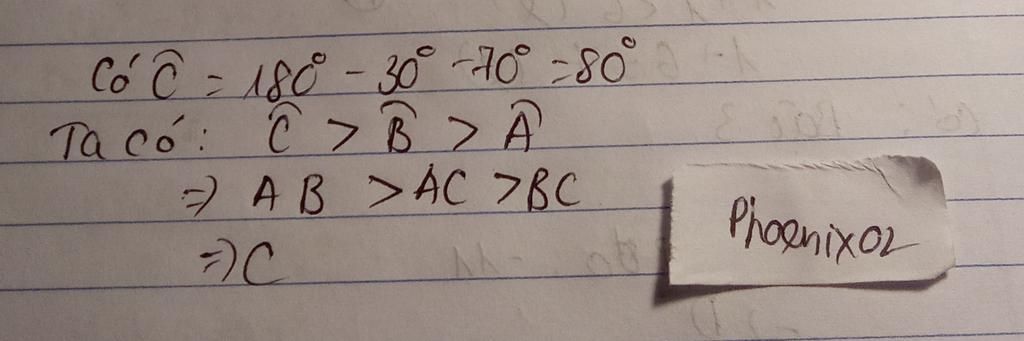 Có Ĉ = 180° - 30° - 70° = 80°
Ta có: Ĉ > B̂ > Â
=> AB > AC > BC
=> C
Phoenix02